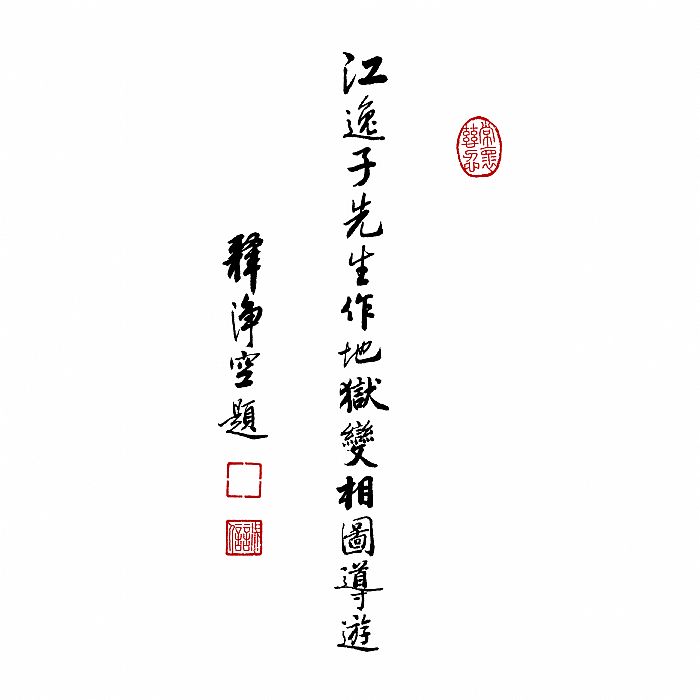 江逸子先生作地獄變相圖導遊
釋淨空題